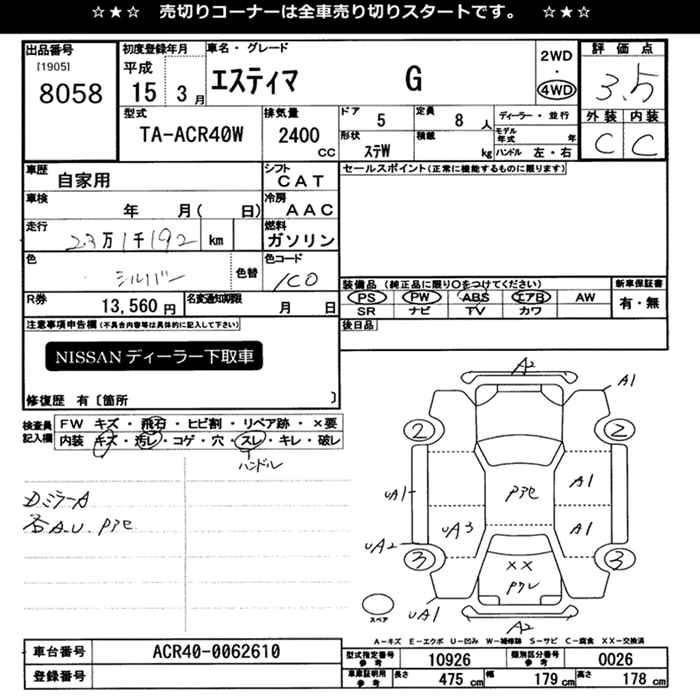 ☆★☆ 売切りコーナーは全車売り切りスタートです。 ☆★☆
出品番号 初度登録年月 車名・グレード 2WD・4WD 評価点
[1905] 8058 平成 15 3月 エスティマ G 3.5
外装 内装
C C
型式 排気量 ドア 5 定員 8人 ディーラー・並行
TA-ACR40W 2400cc 形状 ステW 積載 kg モデル年式 年
ハンドル 左・右
車歴 自家用 シフト CAT セールスポイント(正常に機能するものに限ります)
車検 年 月( 日) 冷房 AAC
走行 23万1千192 km 燃料 ガソリン
色 シルバー 色替 色コード 1C0
装備品 (純正品に限り○をつけてください) 新車保証書
PS PW ABS エアB AW 有・無
SR ナビ TV カワ
R券 13,560円 名変通知期限 月 日
後日品
注意事項申告欄(不具合内容等は具体的に記入して下さい)
NISSANディーラー下取車
修復歴 有〔箇所 〕
検査員記入欄 FW キズ・飛石・ヒビ割・リペア跡・×要
内装 キズ・汚レ・コゲ・穴・スレ・キレ・破レ
ハンドル
DミラーA
各A.U.Pアセ
A2
A1
2 2
A1
UA1
Pアセ
UA3 A1
UA2
3 3
××
Pクレ
UA1
A2
スペア
A-キズ E-エクボ U-凹み W-補修跡 S-サビ C-腐食 XX-交換済
車台番号 ACR40-0062610 型式指定番号 参考 10926 類別区分番号 参考 0026
登録番号 車庫証明用 参考 長さ 475 cm 幅 179 cm 高さ 178 cm